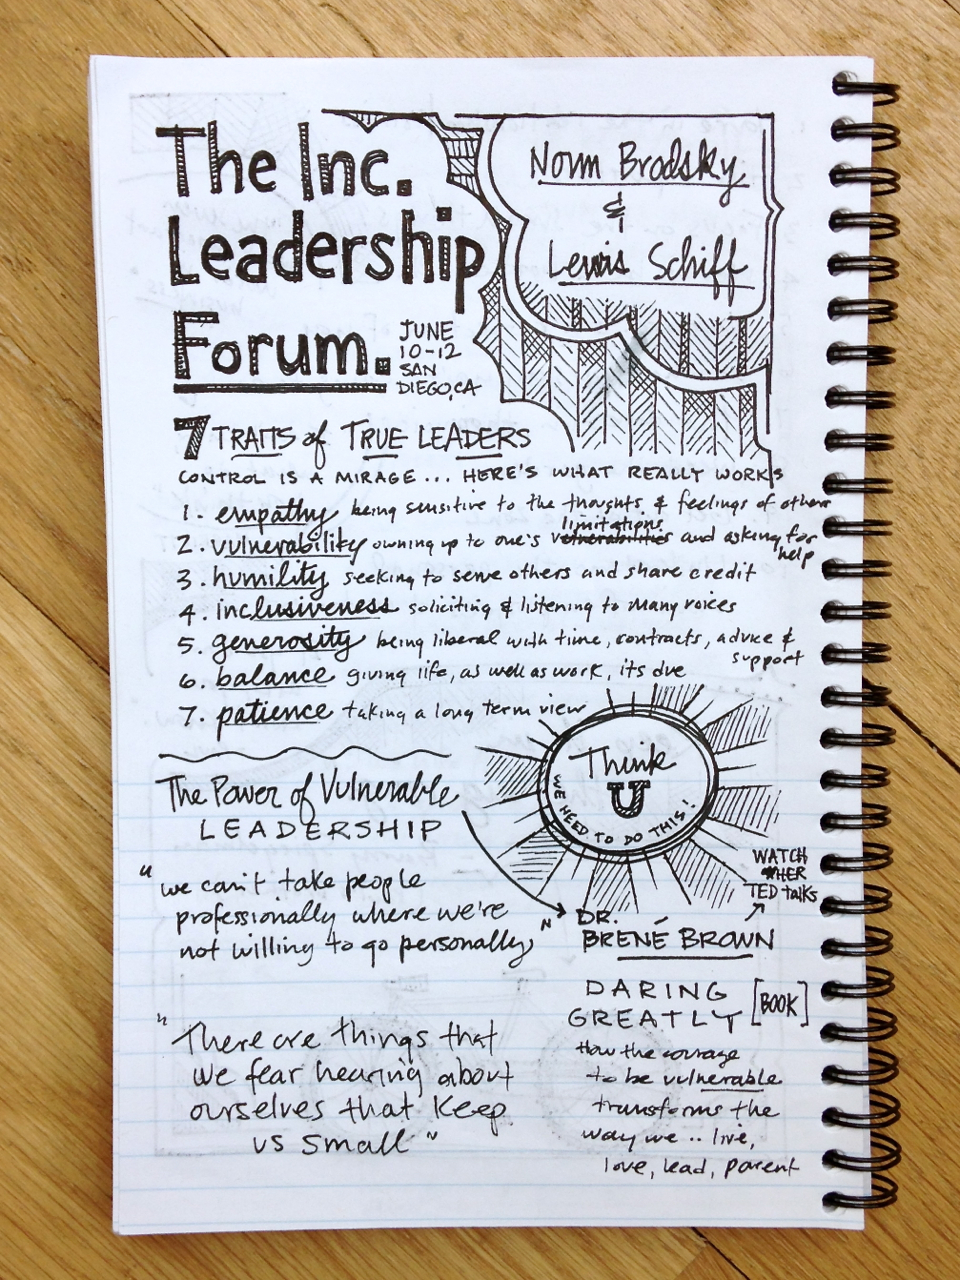 The Inc.
Leadership
Forum.
JUNE
10-12
SAN
DIEGO, CA
Norm Brodsky
&
Lewis Schiff
7 TRAITS of TRUE LEADERS
CONTROL IS A MIRAGE... HERE'S WHAT REALLY WORKS
1. empathy being sensitive to the thoughts & feelings of others
2. vulnerability owning up to one's vulnerabilities limitations and asking for
help
3. humility seeking to serve others and share credit
4. inclusiveness soliciting & listening to many voices
5. generosity being liberal with time, contracts, advice &
support
6. balance giving life, as well as work, its due
7. patience taking a long term view
Think
U
WE NEED TO DO THIS!
The Power of Vulnerable
LEADERSHIP
"we can't take people
professionally where we're
not willing to go personally"
WATCH
HER
TED talks
DR.
BRENÉ BROWN
DARING
GREATLY [BOOK]
How the courage
to be vulnerable
transforms the
way we .. live,
love, lead, parent
"There are things that
we fear hearing about
ourselves that keep
us small"